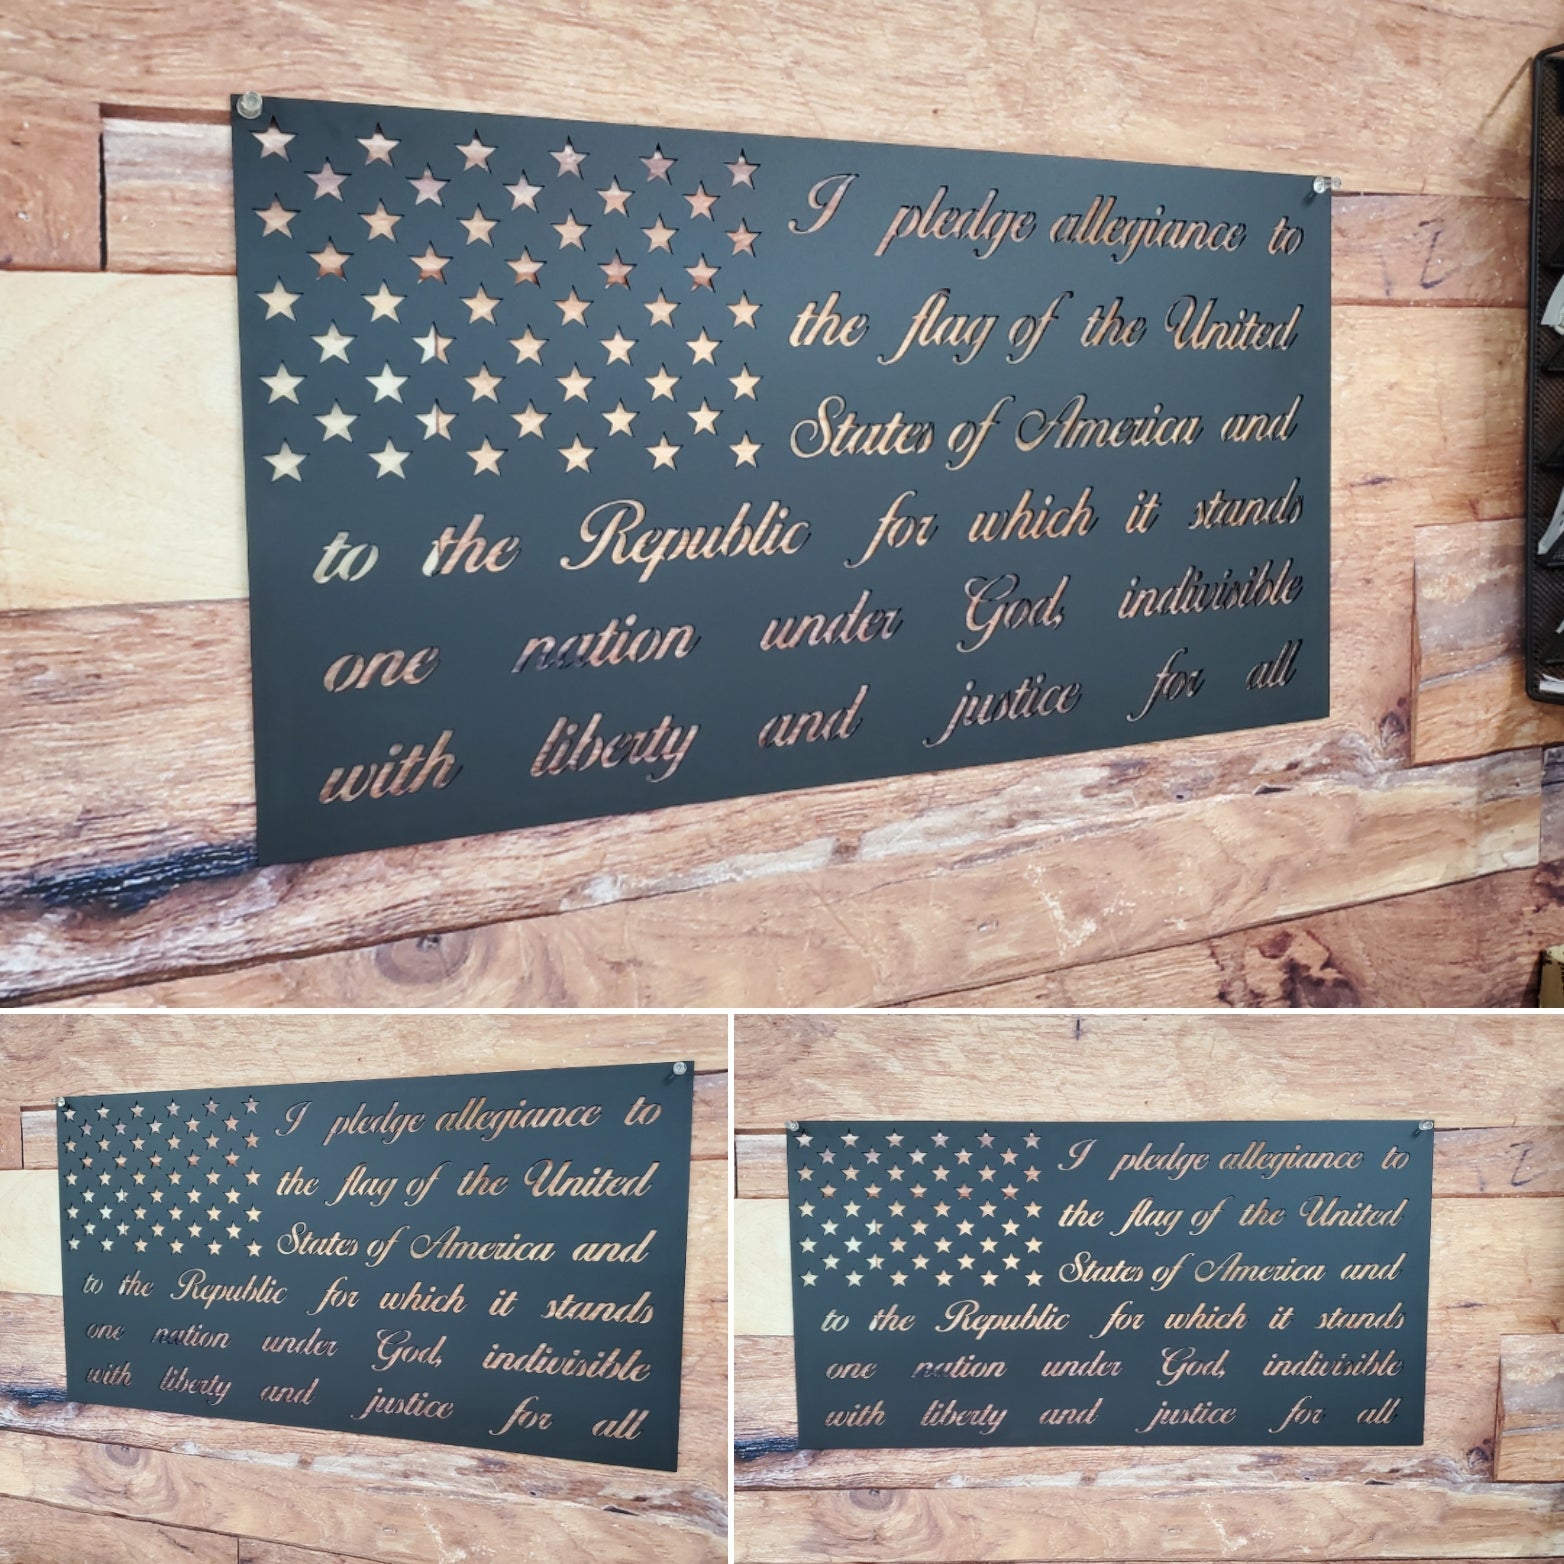 I pledge allegiance to
the flag of the United
States of America and
to the Republic for which it stands
one nation under God, indivisible
with liberty and justice for all
I pledge allegiance to
the flag of the United
States of America and
to the Republic for which it stands
one nation under God, indivisible
with liberty and justice for all
I pledge allegiance to
the flag of the United
States of America and
to the Republic for which it stands
one nation under God, indivisible
with liberty and justice for all